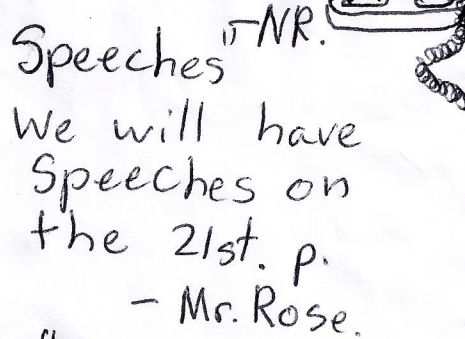 Speeches" -NR.
We will have
Speeches on
the 21st. p.
- Mr. Rose.